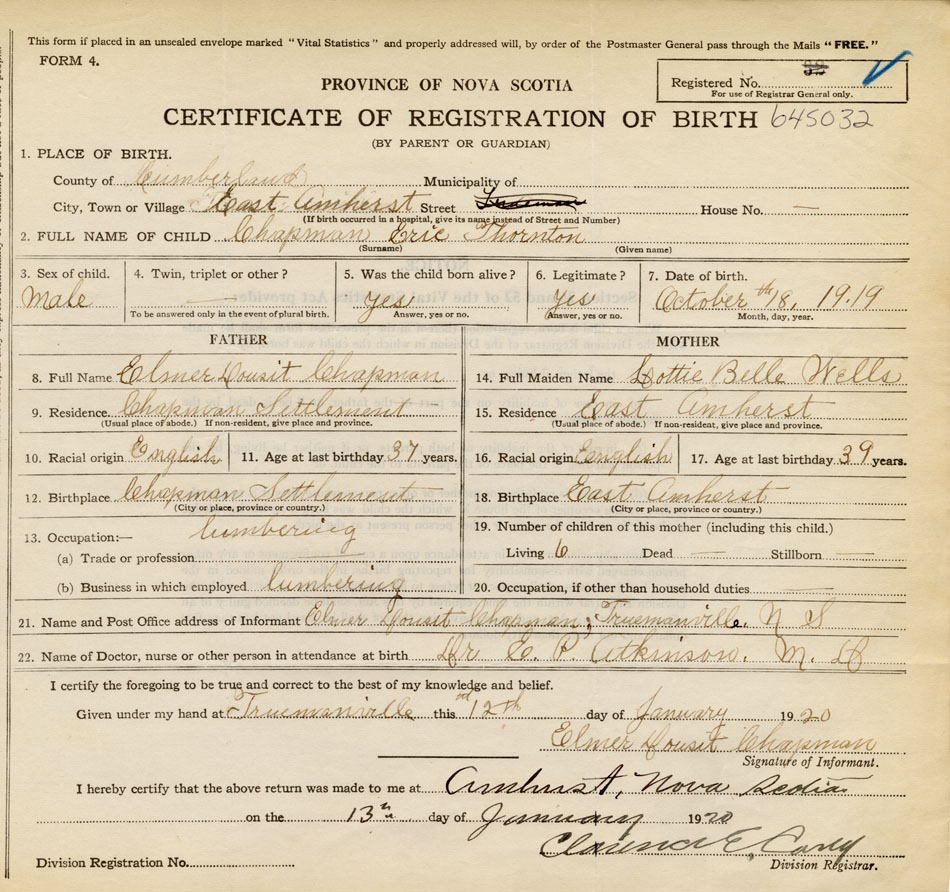 This form if placed in an unsealed envelope marked "Vital Statistics" and properly addressed will, by order of the Postmaster General pass through the Mails "FREE."
FORM 4.
Registered No.
For use of Registrar General only.
PROVINCE OF NOVA SCOTIA
CERTIFICATE OF REGISTRATION OF BIRTH 645032
(BY PARENT OR GUARDIAN)
1. PLACE OF BIRTH.
County of Cumberland Municipality of
City, Town or Village East Amherst Street House No. —
(If birth occurred in a hospital, give its name instead of Street and Number)
2. FULL NAME OF CHILD Chapman Eric Thornton
(Surname) (Given name)
3. Sex of child. 4. Twin, triplet or other? 5. Was the child born alive? 6. Legitimate? 7. Date of birth.
Male — Yes Yes October th 18, 1919
To be answered only in the event of plural birth. Answer, yes or no. (Answer, yes or no. Month, day, year.
FATHER MOTHER
8. Full Name Elmer Dousit Chapman 14. Full Maiden Name Lottie Belle Wells
9. Residence. Chapman Settlement 15. Residence East Amherst
(Usual place of abode.) If non-resident, give place and province. (Usual place of abode.) If non-resident, give place and province.
10. Racial origin English 11. Age at last birthday 37 years. 16. Racial origin English 17. Age at last birthday 39 years.
12. Birthplace Chapman Settlement 18. Birthplace East Amherst
(City or place, province or country.) (City or place, province or country.)
13. Occupation:— lumbering 19. Number of children of this mother (including this child.)
(a) Trade or profession Living 6 Dead — Stillborn —
(b) Business in which employed lumbering 20. Occupation, if other than household duties —
21. Name and Post Office address of Informant Elmer Dousit Chapman; Truemanville. N S
22. Name of Doctor, nurse or other person in attendance at birth Dr E. P. Atkinson. M. D
I certify the foregoing to be true and correct to the best of my knowledge and belief.
Given under my hand at Truemanville this 12th day of January 1920
Elmer Dousit Chapman
Signature of Informant.
I hereby certify that the above return was made to me at Amherst, Nova Scotia
on the 13th day of January 1920
Clarence E.
Division Registration No. Division Registrar.